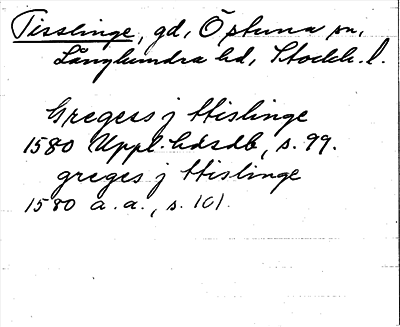 Tisslinge, gd, Östuna sn,
Långhundra hd, Stockh. l.
Gregers j ttislinge
1580 Uppl. hdsdb, s. 99.
greges j ttislinge
1580 a. a., s. 101.